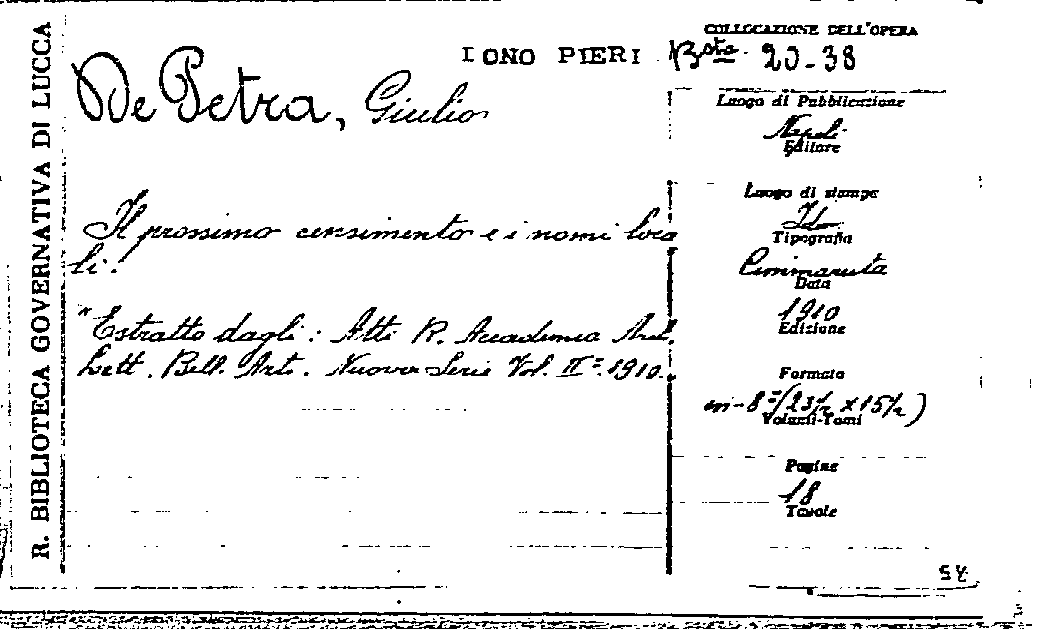 R. BIBLIOTECA GOVERNATIVA DI LUCCA
COLLOCAZIONE DELL'OPERA
DONO PIERI Bsta. 20-38
De Petra, Giulio
Luogo di Pubblicazione
Napoli
Editore
Luogo di stampa
Id.
Tipografia
Cimmaruta
Data
1910
Edizione
Formato
in-8º (23½ x 15½)
Volumi-Tomi
Pagine
18
Tavole
Il prossimo censimento e i nomi loca
li.
"Estratto dagli: Atti R. Accademia Arch.
Lett. Bell. Arti. Nuova Serie Vol. IIº. 1910.